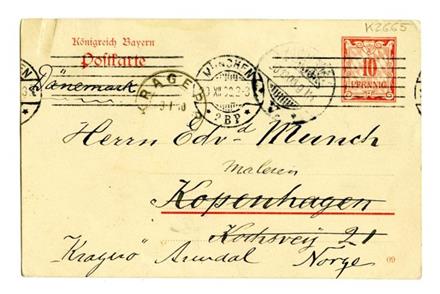 K2665
Königreich Bayern
Postkarte
10
PFENNIG
Dänemark
KRAGERØ
MÜNCHEN
2 B.P.
Herrn Edv<sup>d</sup> Munch
Maleren
Kopenhagen
Kochsvej 21
"Kragerö" Arendal Norge
09